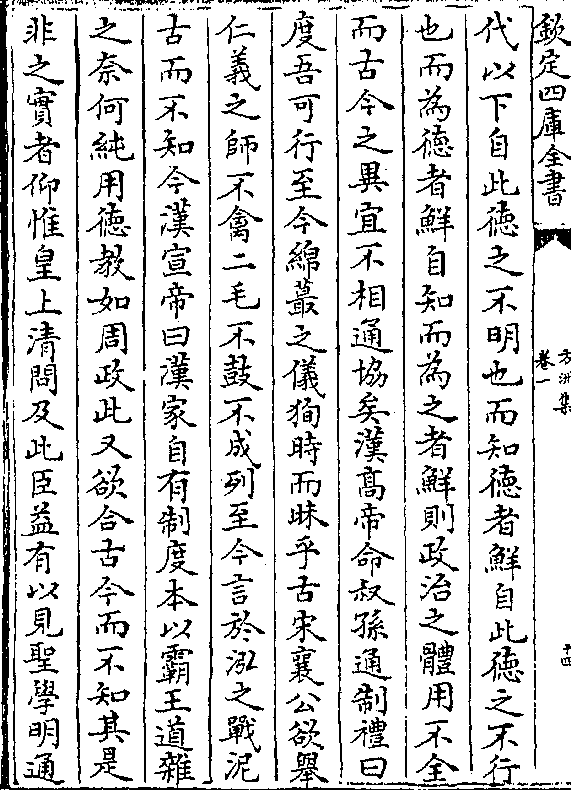 欽定四庫全書
方洲集
卷一
十四
代以下自此徳之不明也而知徳者鮮自此徳之不行
也而為徳者鮮自知而為之者鮮則政治之體用不全
而古今之異宜不相通協矣漢髙帝命叔孫通制禮曰
度吾可行至今綿蕞之儀狥時而昧乎古宋襄公欲舉
仁義之師不禽二毛不鼓不成列至今言於泓之戰泥
古而不知今漢宣帝曰漢家自有制度本以霸王道雜
之奈何純用徳教如周政此又欲合古今而不知其是
非之實者仰惟皇上清問及此臣益有以見聖學明通